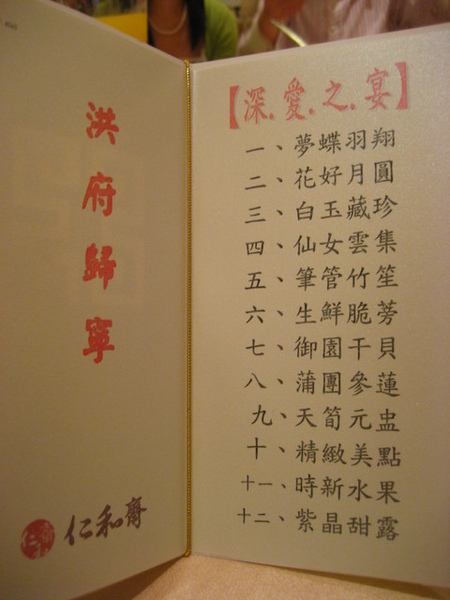 洪府歸寧
仁和齋
【深.愛.之.宴】
一、夢蝶羽翔
二、花好月圓
三、白玉藏珍
四、仙女雲集
五、筆管竹笙
六、生鮮脆蒡
七、御園干貝
八、蒲團參蓮
九、天筍元盅
十、精緻美點
十一、時新水果
十二、紫晶甜露